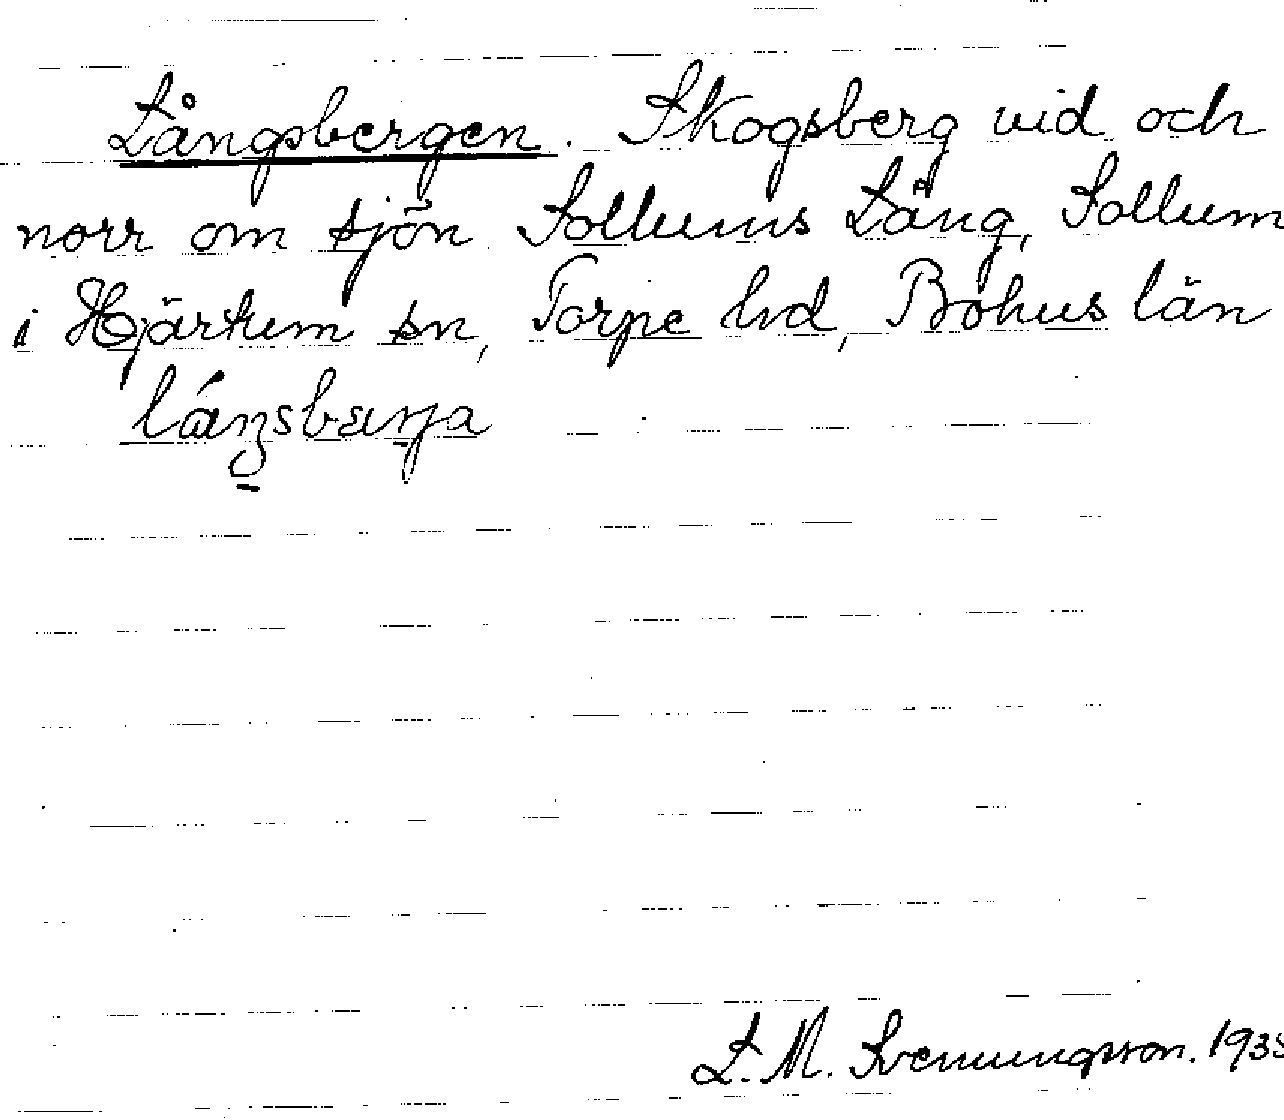 Långsbergen. Skogsberg vid och
norr om sjön Sollums Lång, Sollum
i Hjärtum sn, Torpe hd, Bohus län
L. M. Svenungsson. 193